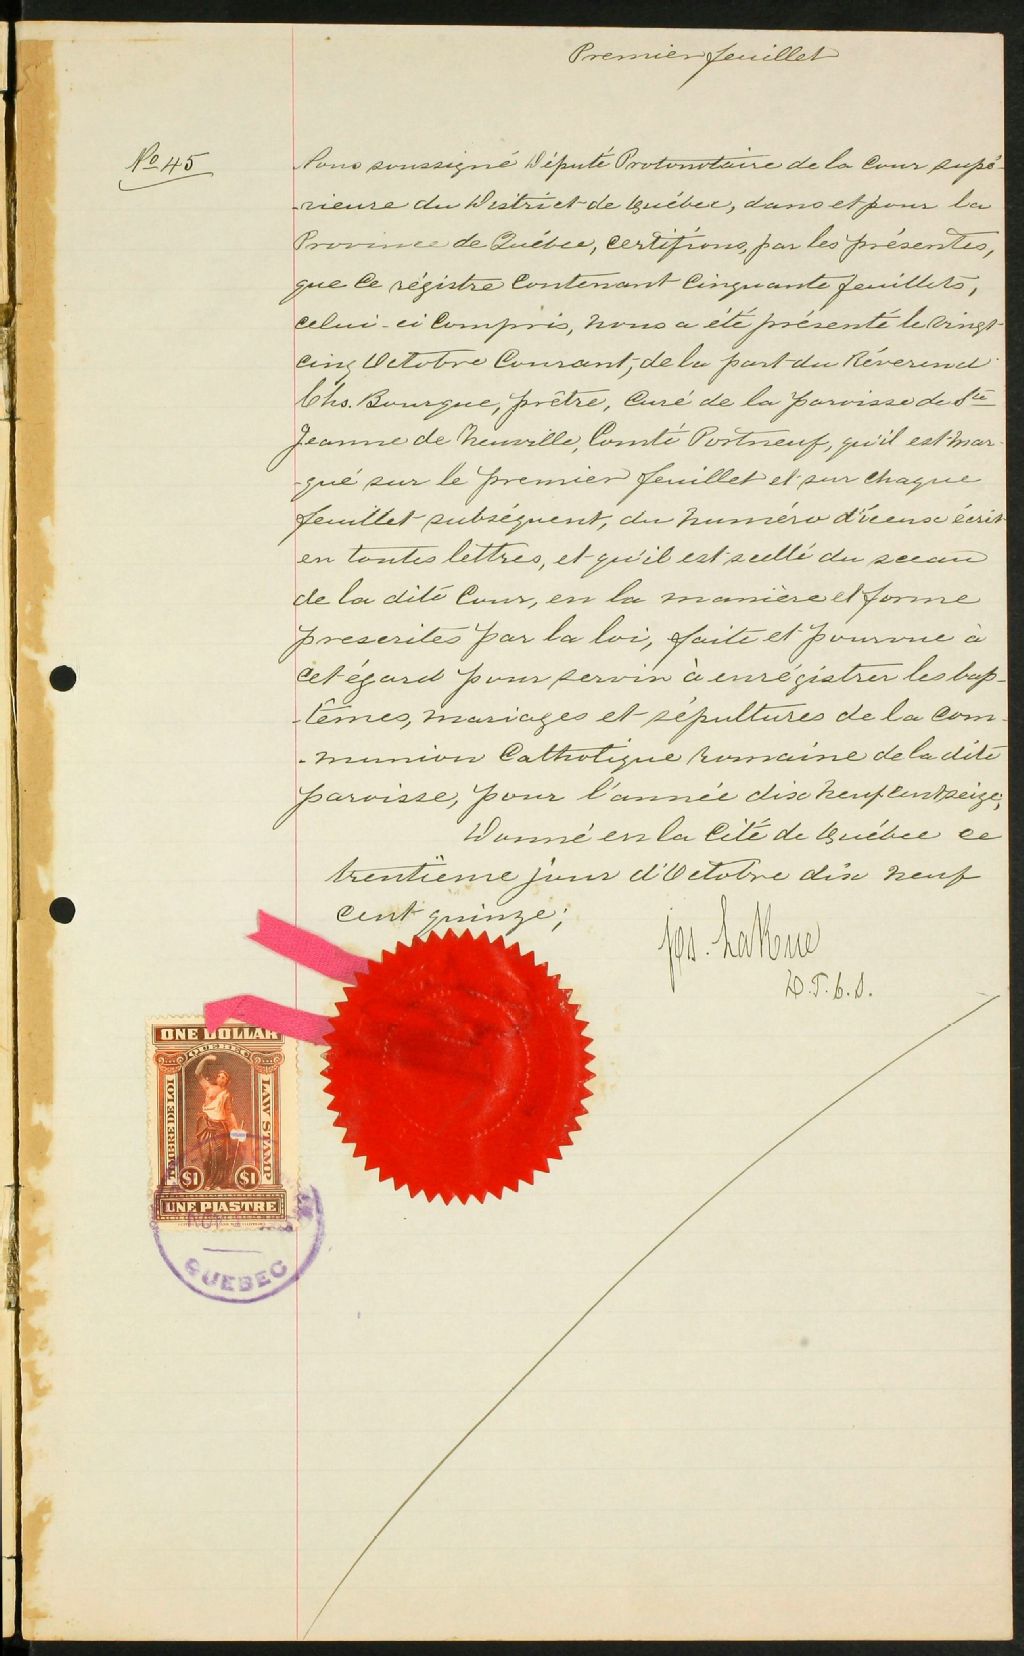 Premier feuillet
No 45
Nous soussigné Député Protonotaire de la Cour supé-
-rieure du District de Québec, dans et pour la
Province de Québec, certifions, par les présentes,
que ce régistre contenant cinquante feuillets,
celui-ci compris, nous a été présenté le vingt
cinq Octobre courant, de la part du Révérend
Chs. Bourque, prêtre, Curé de la paroisse de Ste
Jeanne de Neuville, Comté Portneuf, qu'il est mar-
-qué sur le premier feuillet et sur chaque
feuillet subséquent, du numéro d'iceux écrit
en toutes lettres, et qu'il est scellé du sceau
de la dite Cour, en la manière et forme
prescrites par la loi, faite et pourvue à
cet égard pour servir à enrégistrer les bap-
-têmes, mariages et sépultures de la com-
-munion Catholique romaine de la dite
paroisse, pour l'année dix neuf cent seize,
Donné en la Cité de Québec ce
trentième jour d'Octobre dix neuf
cent quinze;
Jos. LaRue
D.P.C.S.
ONE DOLLAR
QUEBEC
TIMBRE DE LOI
LAW STAMP
$1 $1
UNE PIASTRE
QUEBEC